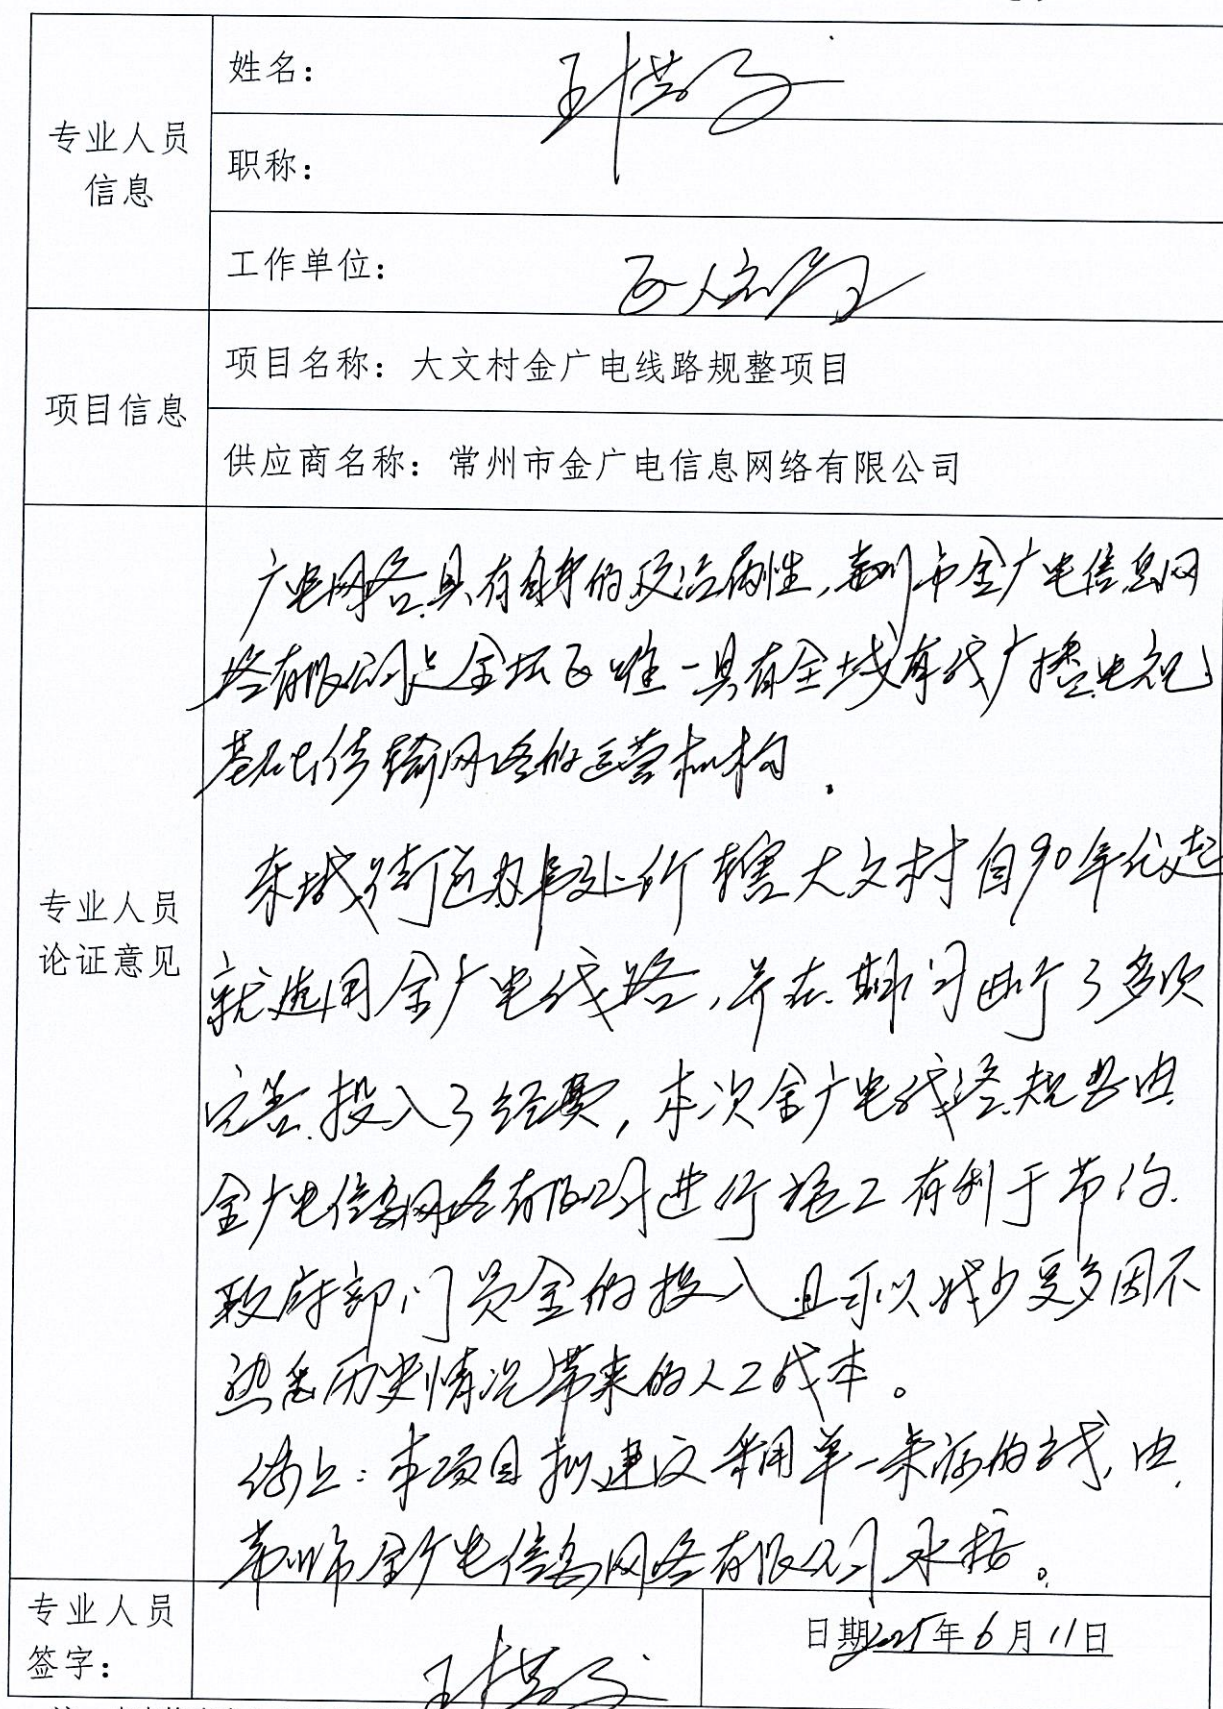 姓名：
专业人员
信息
职称：
工作单位：
项目信息
项目名称：大文村金广电线路规整项目
供应商名称：常州市金广电信息网络有限公司
专业人员
论证意见
广电网络具有自身的政治属性，常州市金广电信息网
络有限公司是金坛区唯一具有全域有线广播电视
基础传输网络的运营机构．
东城街道办事处所辖大文村自90年代起
就选用金广电线路，并在期间进行了多次
完善投入了经费，本次金广电线路规整由
金广电信息网络有限公司进行施工有利于节约
政府部门资金的投入且可以减少更多因不
熟悉历史情况带来的人工成本。
综上：本项目拟建议采用单一来源的方式，由
常州市金广电信息网络有限公司承接。
专业人员
签字：
日期2025年6月11日